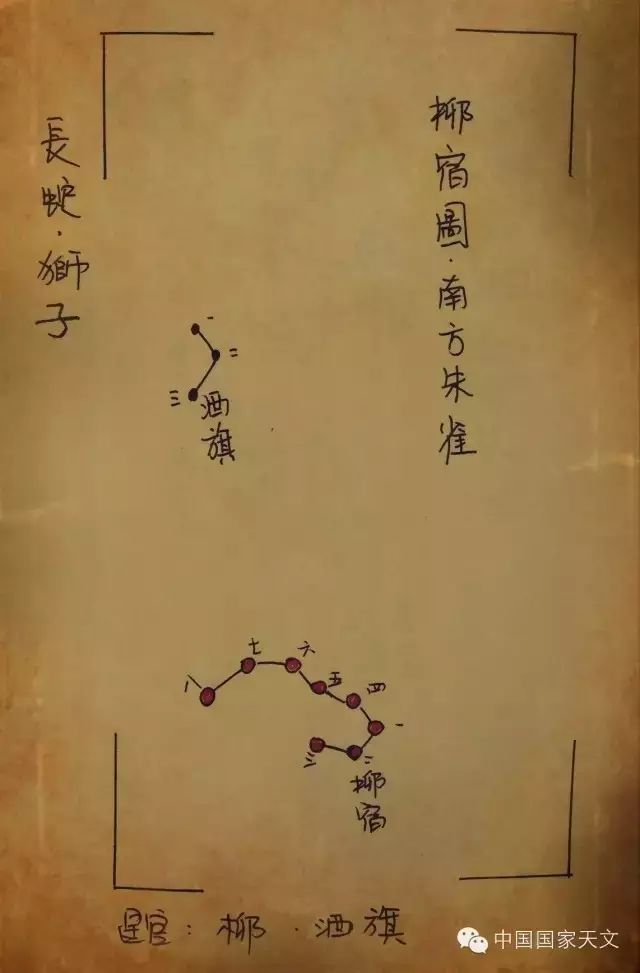 柳宿圖·南方朱雀
長蛇·獅子
一
二
三
酒旗
八
七
六
五
四
一
二
三
柳宿
星官：柳·酒旗
中国国家天文